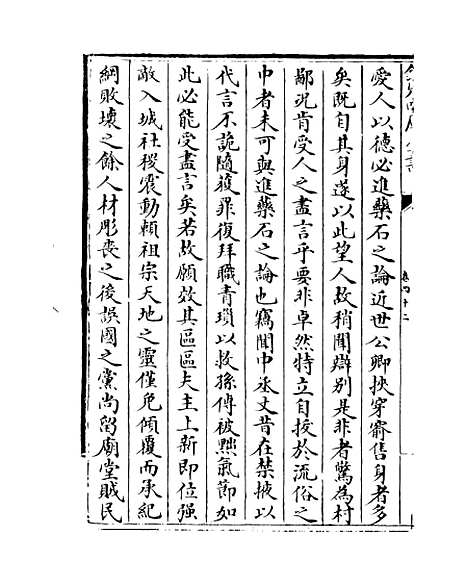 愛人以德必進藥石之論近世公卿挾穿窬售身者多
矣既自其身遂以此望人故稍聞辯别是非者驚為村
鄙況肯受人之盡言乎要非卓然特立自拔於流俗之
中者未可與進藥石之論也竊聞中丞丈昔在禁掖以
代言不詭隨獲罪復拜職青瑣以救孫傅被黜氣節如
此必能受盡言矣若故願效其區區夫主上新即位强
敵入城社稷震動頼祖宗天地之靈僅免傾覆而承紀
綱敗壞之餘人材彫喪之後誤國之黨尚留廟堂賊民
卷四十二